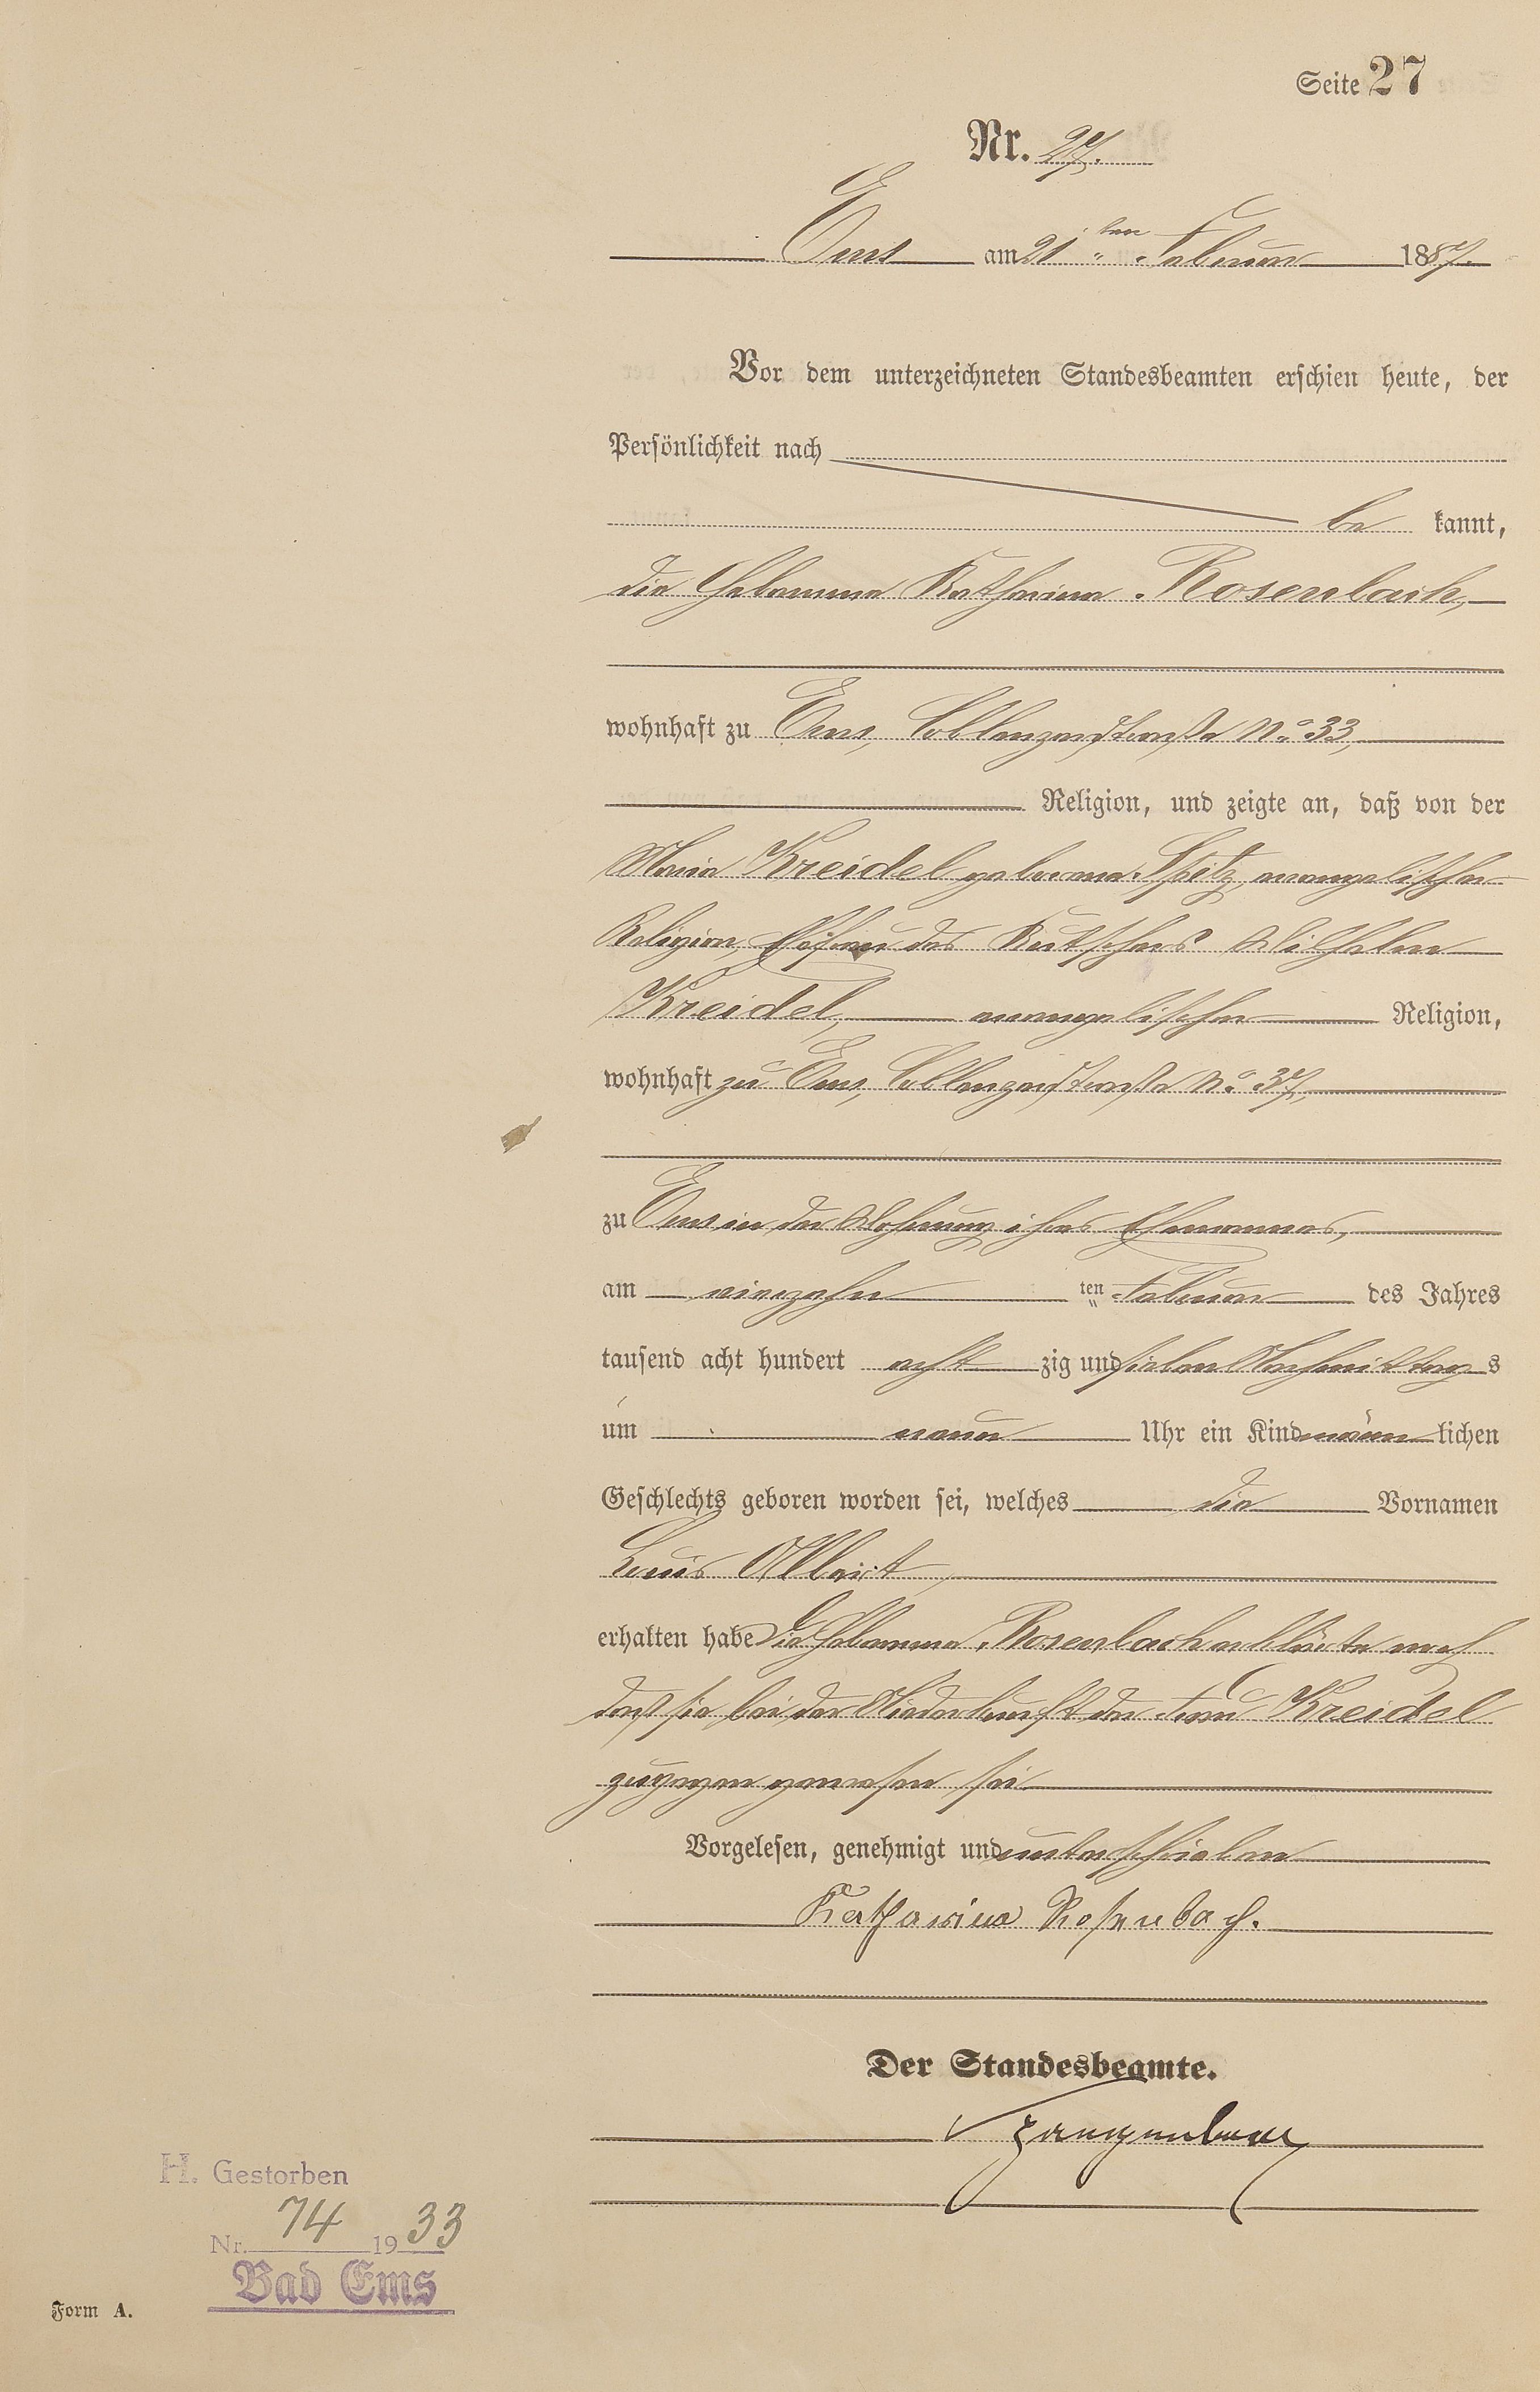 Seite 27
Nr. 27.
Ems am 21ten Februar 1887.
Vor dem unterzeichneten Standesbeamten erschien heute, der
Persönlichkeit nach
be kannt,
die Hebamme Katharina Rosenbach,
wohnhaft zu Ems, Coblenzerstraße No 33,
Religion, und zeigte an, daß von der
Maria Kreidel geborene Spitz, evangelischer
Religion, Ehefrau des Kutschers Wilhelm
Kreidel, evangelischer Religion,
wohnhaft zu Ems, Coblenzerstraße No 37,
zu Ems in der Wohnung ihres Ehemannes,
am vierzehn ten Februar des Jahres
tausend acht hundert acht zig und sieben Nachmittags
um neun Uhr ein Kind männ lichen
Geschlechts geboren worden sei, welches die Vornamen
Louis Albert,
erhalten habe Die Hebamme Rosenbach erklärte noch
daß sie bei der Niederkunft der Frau Kreidel
zugegen gewesen sei
Vorgelesen, genehmigt und unterschrieben
Katharina Rosenbach.
Der Standesbeamte.
H. Gestorben
Nr. 74 1933
Bad Ems
Form A.